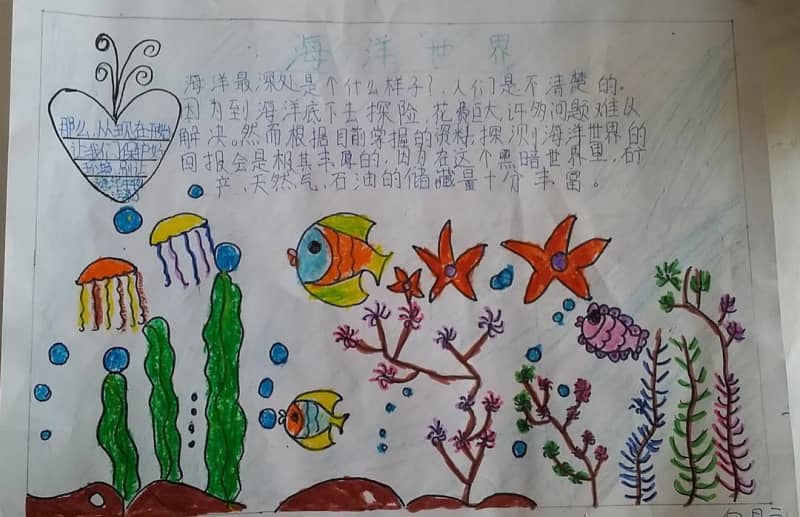 海洋世界
海洋最深处是个什么样子?,人们是不清楚的。
因为到海洋底下去探险,花费巨大,许多问题难以
解决。然而根据目前掌握的资料,探测海洋世界的
回报会是极其丰厚的,因为在这个黑暗世界里,矿
产、天然气、石油的储藏量十分丰富。
那么,从现在开始
让我们保护好
环境,别让